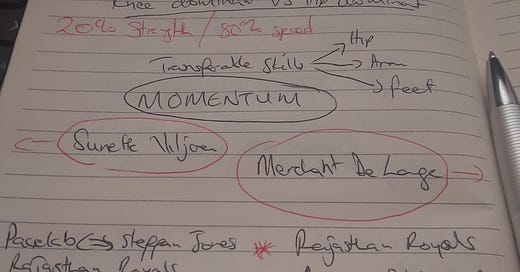 Knee dominant vs hip dominant
20% Strength / 80% speed
Hip
Transferable Skills Arm
feet
MOMENTUM
Sunette Viljoen
Merchant De Lange
Pacelab Steffan Jones * Rajasthan Royals
Rajasthan Royals